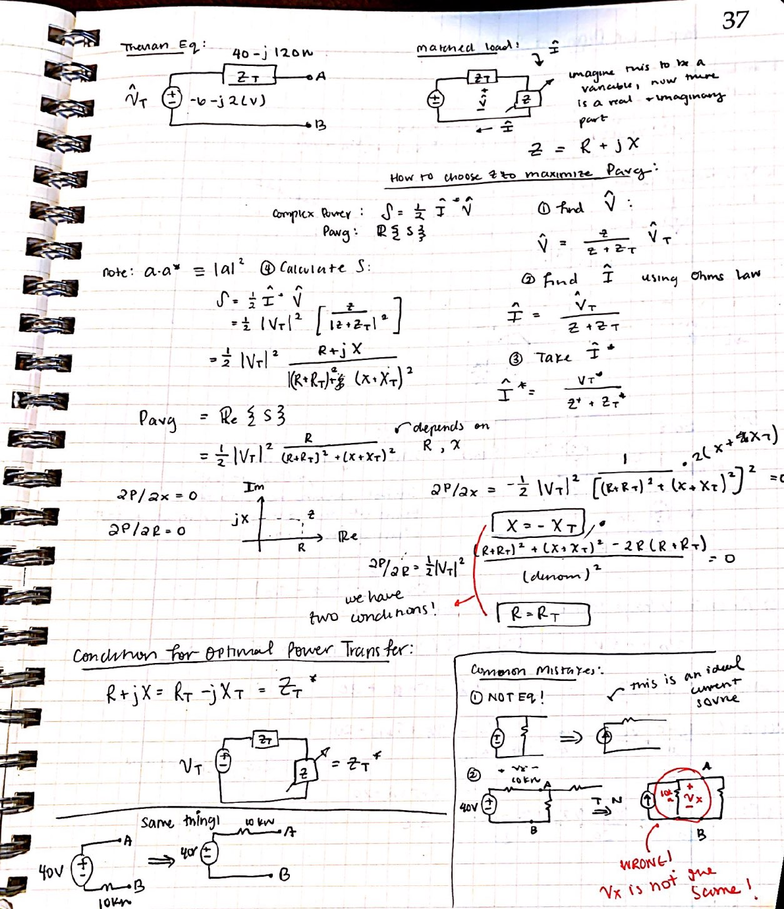 37
Theven Eq:
40-j120Ω
Z_T
A
V̂_T
-6-j2(V)
B
matched load:
Î
Z_T
V̂
Z
Î
imagine this to be a
variable, now there
is a real + imaginary
part
Z = R + jX
How to choose Z to maximize Pavg:
Complex Power: S = ½ Î* V̂
Pavg: R{S}
① Find V̂:
V̂ = Z / (Z + Z_T) V̂_T
note: a·a* ≡ |a|²
④ Calculate S:
S = ½ Î* V̂
= ½ |V_T|² [Z / |Z+Z_T|²]
= ½ |V_T|² (R+jX) / ((R+R_T)² + (X+X_T)²)
② Find Î using Ohms Law
Î = V̂_T / (Z + Z_T)
③ Take Î*
Î* = V_T* / (Z* + Z_T*)
Pavg = Re{S}
= ½ |V_T|² R / ((R+R_T)² + (X+X_T)²)
depends on
R, X
∂P/∂x = 0
∂P/∂R = 0
Im
jX
Z
R
Re
∂P/∂x = -½ |V_T|² 1 / [(R+R_T)² + (X+X_T)²]² · 2(X+X_T) = 0
X = -X_T
∂P/∂R = ½|V_T|² ((R+R_T)² + (X+X_T)² - 2R(R+R_T)) / (denom)² = 0
we have
two conditions!
R = R_T
Condition for Optimal Power Transfer:
R+jX = R_T - jX_T = Z_T*
Z_T
V_T
Z
= Z_T*
same thing!
40V
A
B
10kΩ
⇒
40V
10kΩ
A
B
Common Mistakes:
① NOT EQ!
this is an ideal
current source
⇒
②
+ Vx -
10kΩ
A
40V
B
T → N
⇒
A
10kΩ
+
Vx
-
B
WRONG!
Vx is not the
same!